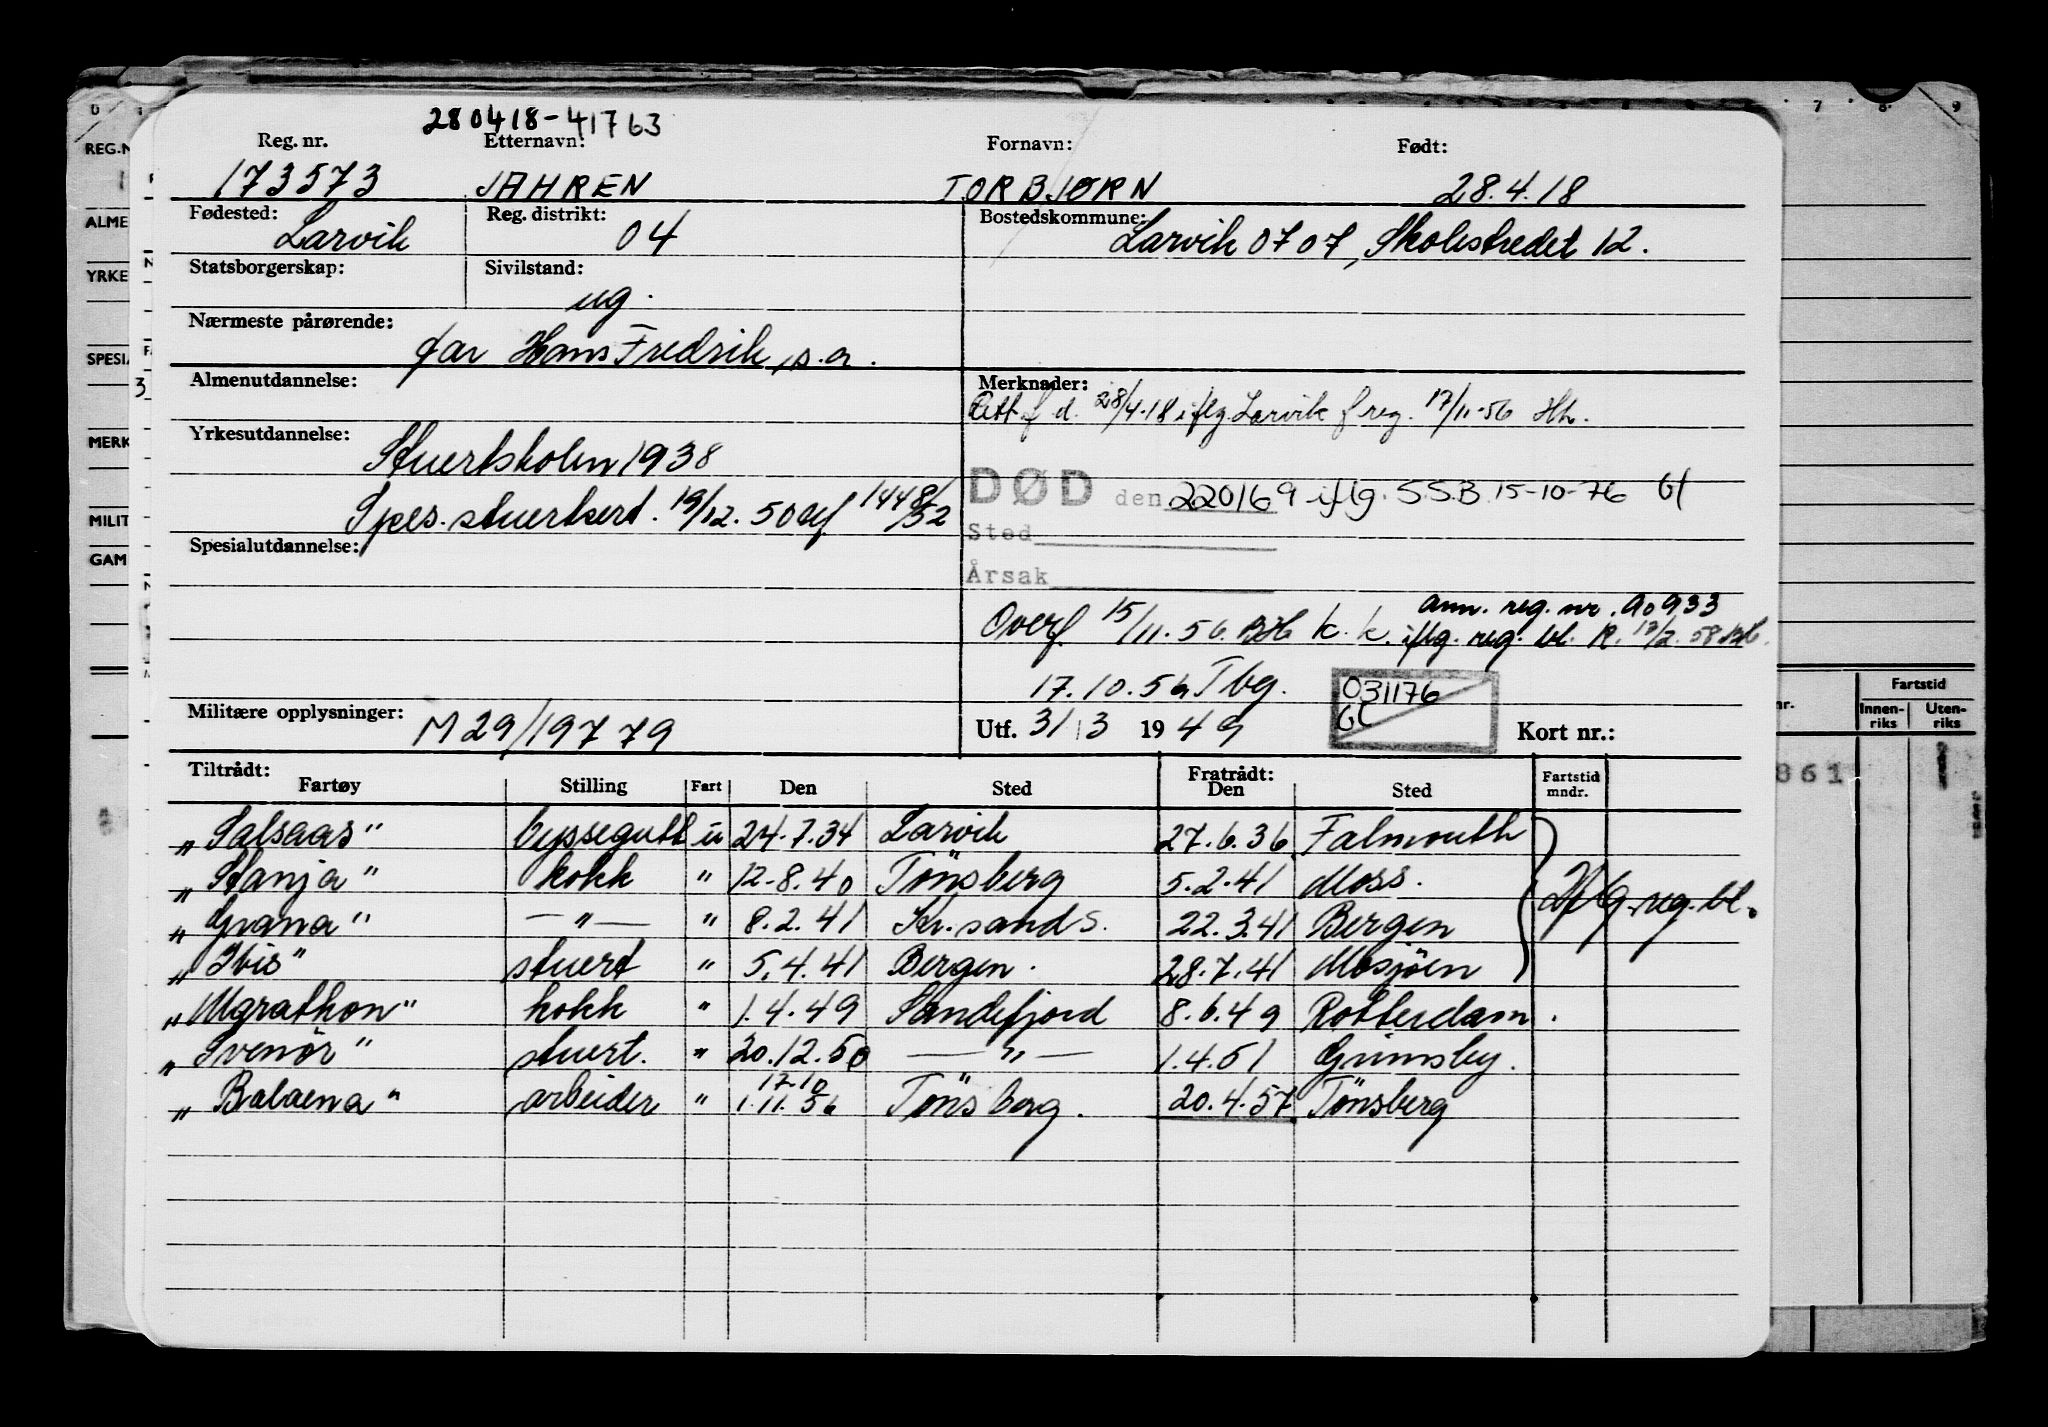 280418-41763
Reg. nr. Etternavn: Fornavn: Født:
173573 JAHREN TORBJØRN 28.4.18
Fødested: Larvik Reg. distrikt: 04 Bostedskommune: Larvik 0707, Skolestredet 12.
Statsborgerskap: Sivilstand: ug.
Nærmeste pårørende: far Hans Fredrik, s.a.
Almenutdannelse: Merknader:
Rett f.d. 28/4-18 iflg Larvik f reg. 17/11-56 Hh.
Yrkesutdannelse: Stuertskolen 1938
Spes. stuertsert. 19/12.50 1448/52
DØD den 220169 iflg. S.S.B 15-10-76 Gl
Sted
Spesialutdannelse:
Årsak
ann. reg. nr. 90933
Overf 15/11.56. BH k.k. iflg. reg. bl. R. 13/2.58
17.10.56 Tbg. 031176
Gl
Militære opplysninger: M 29/19779 Utf. 31/3 1949 Kort nr.:
Tiltrådt: Fratrådt:
Fartøy Stilling Fart Den Sted Den Sted Fartstid mndr.
"Salsaas" byssegutt u 24.7.34 Larvik 27.6.36 Falmouth
"Stanja" kokk " 12.8.40 Tönsberg 5.2.41 Moss.
"Grana" — " — " 8.2.41 Kr.sand S. 22.3.41 Bergen
Iflg. reg. bl.
"Ibis" stuert " 5.4.41 Bergen. 28.7.41 Mosjöen
"Marathon" kokk " 1.4.49 Sandefjord 8.6.49 Rotterdam.
"Svenör" stuert. " 20.12.50 — " — 1.4.51 Grimsby.
17.10
"Balaena" arbeider " 1.11.56 Tönsberg. 20.4.57 Tönsberg
REG.N
ALME
YRKE
SPESIA
3
MERK
MILIT
GAM
7 8 9
Fartstid
nr. Innen-riks Uten-riks
861